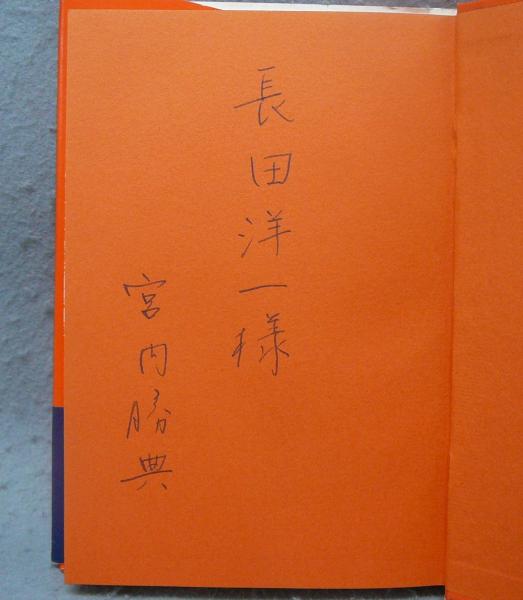 長田洋一様
宮内勝典